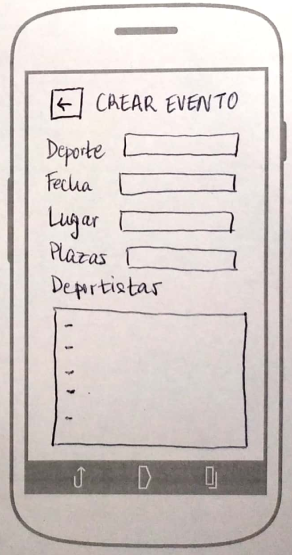 ← CREAR EVENTO
Deporte
Fecha
Lugar
Plazas
Deportistas
-
-
-
-
-